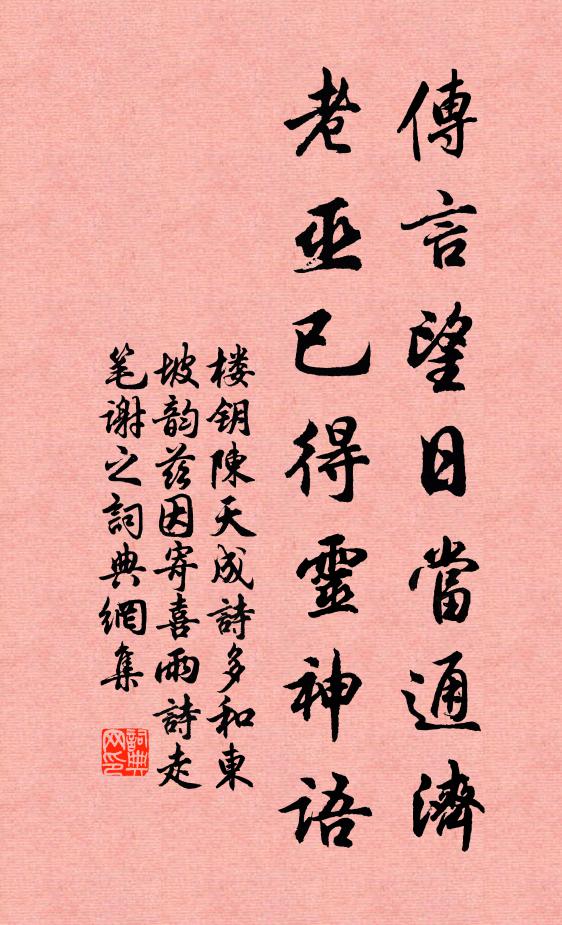 傳言望日當通濟
老巫已得靈神語
楼钥陳天成詩多和東
坡韵兹因寄喜雨詩走
笔谢之詞典網集
詞典
网印